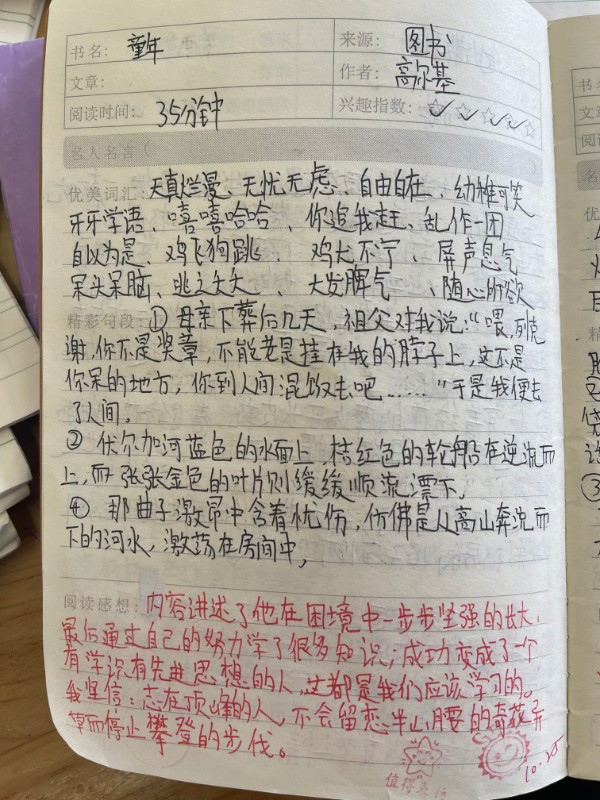 书名：童年 来源：图书
文章： 作者：高尔基
阅读时间：35分钟 兴趣指数：☆☆☆☆☆
名人名言（
优美词汇：天真烂漫、无忧无虑、自由自在、幼稚可笑
牙牙学语、嘻嘻哈哈、你追我赶、乱作一团
自以为是、鸡飞狗跳、鸡犬不宁、屏声息气
呆头呆脑、逃之夭夭 大发脾气、随心所欲
精彩句段：①母亲下葬后几天，祖父对我说："喂，列克
谢，你不是奖章，不能老是挂在我的脖子上，这不是
你呆的地方，你到人间混饭去吧……"于是我便去
了人间。
②伏尔加河蓝色的水面上，桔红色的轮船在逆流而
上，而一张张金色的叶片则缓缓顺流漂下，
④那曲子激昂中含着忧伤，仿佛是从高山奔流而
下的河水，激荡在房间中，
阅读感想：内容讲述了他在困境中一步步坚强的长大，
最后通过自己的努力学了很多知识；成功变成了一个
有学识有先进思想的人，这都是我们应该学习的。
我坚信：志在顶峰的人，不会留恋半山腰的奇花异
草而停止攀登的步伐。
10.25